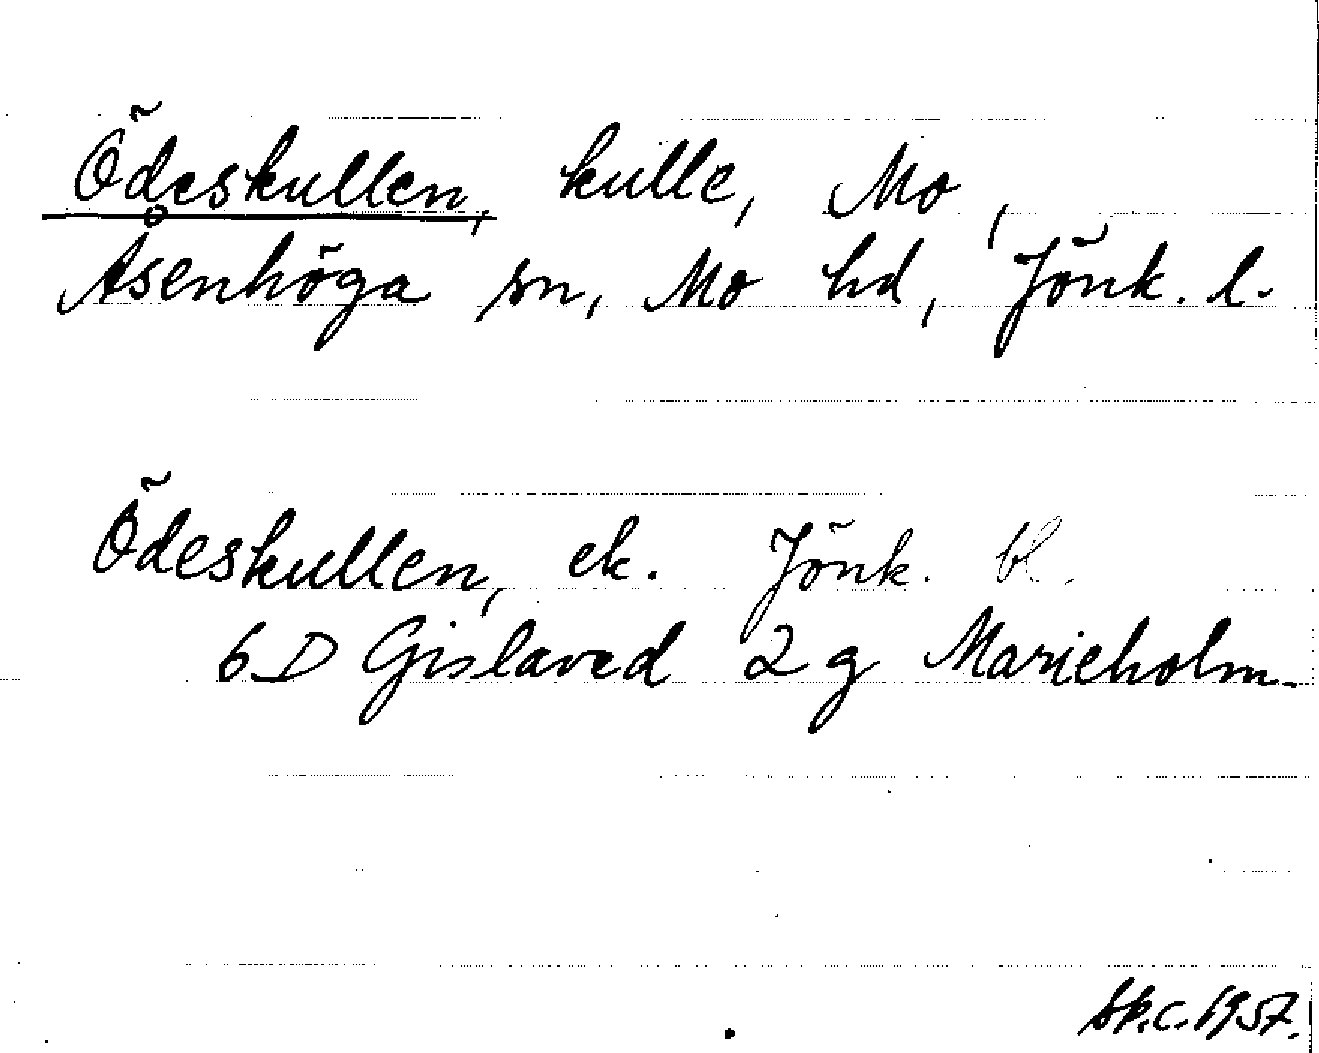 Ödeskullen, kulle, Mo,
Åsenhöga sn, Mo hd, Jönk. l.
Ödeskullen, ek. Jönk. bl.
6D Gislaved 2g Marieholm.
Sk.c. 1957.